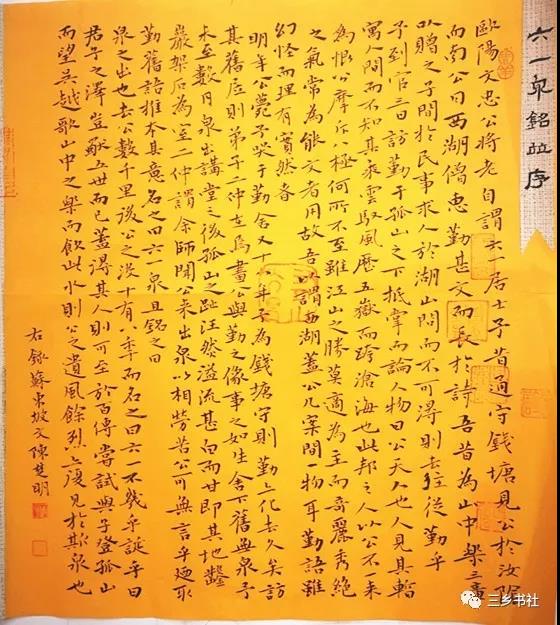 六一泉銘並序
歐陽文忠公將老自謂六一居士予昔通守錢塘見公於汝陰
而南公曰西湖僧惠勤甚文而長於詩吾昔為山中樂三章
以贈之子間於民事求人於湖山間而不可得則往從勤乎
予到官三日訪勤于孤山之下抵掌而論人物曰公天人也人見其暫
寓人間而不知其乘雲馭風歷五嶽而跨滄海也此邦之人以公不來
為恨公摩斥八極何所不至雖江山之勝莫適為主而奇麗秀絕
之氣常為能文者用故吾以謂西湖蓋公几案間一物耳勤語雖
幻怪而理有實然者
明年公薨予哭于勤舍又十八年予為錢塘守則勤亦化去久矣訪
其舊居則弟子二仲在焉畫公與勤之像事之如生舍下舊無泉予
未至數月泉出講堂之後孤山之趾汪然溢流甚白而甘即其地鑿
巖架石為室二仲謂余師聞公來出泉以相勞苦公可無言乎迺取
勤舊語推本其意名之曰六一泉且銘之曰
泉之出也去公數千里後公之沒十有八年而名之曰六一不幾乎誕乎曰
君子之澤豈獻五世而已蓋得其人則可至於百傳嘗試與子登孤山
而望吳越歌山中之樂而飲此水則公之遺風餘烈亦復見於斯泉也
右錄蘇東坡文陳楚明
三乡书社